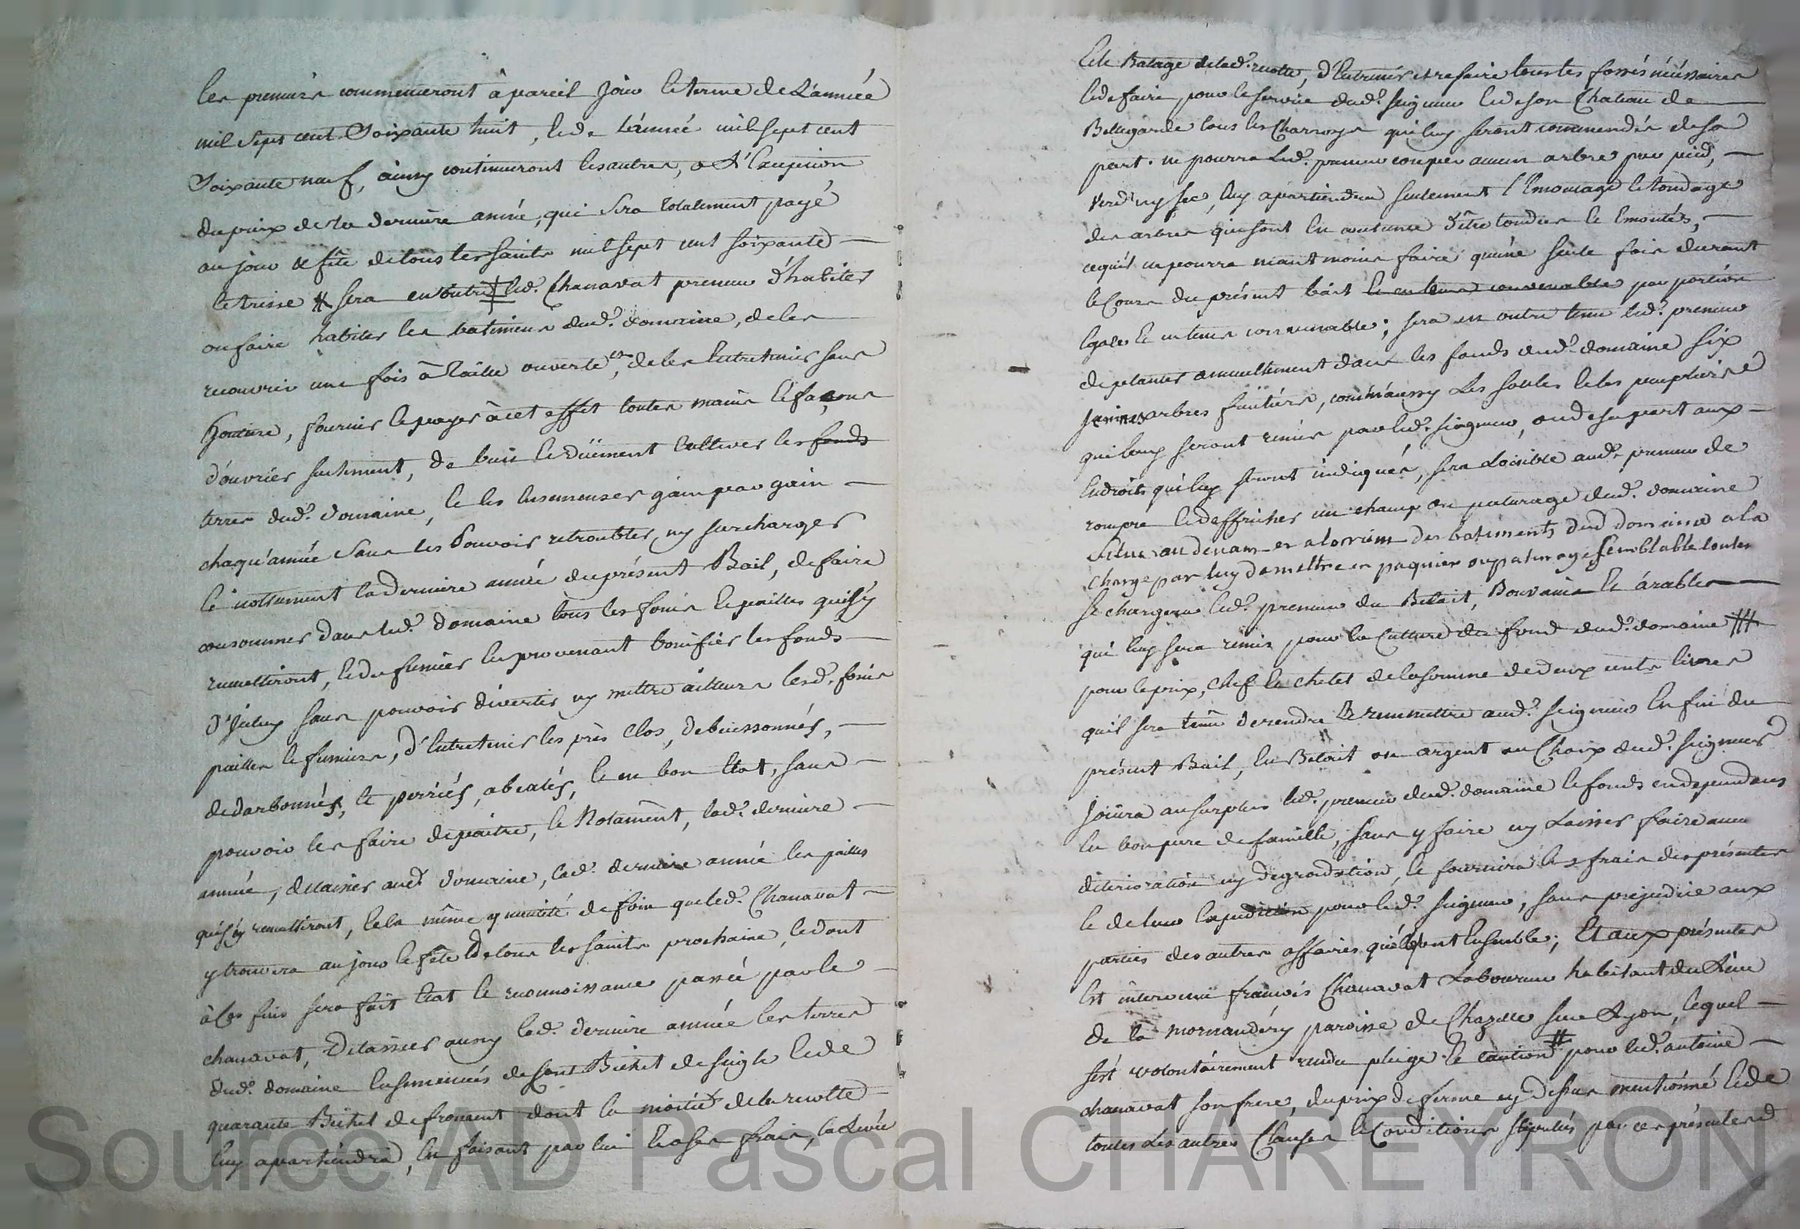 les premiers commenceront à pareil jour le terme de L'année
mil sept cent soixante huit, et de L'année mil sept cent
soixante neuf, ainsy continueront les autres, a L'exception
du prix de la derniere année, qui sera totalement payé
au jour et fête de tous les saints mil sept cent soixante
et treise # sera en outre led. Chanavat preneur d'habiter
ou faire habiter les batimens dud. domaine, de les
recouvrir une fois à taille ouverte, de les Entretenir sans
goutiere, fournir et payer à cet effet toutes mains et façons
d'ouvriers seulement, de bien et düement Cultiver les fonds
terres dud. domaine, et les ensemenser gain pour gain
chaqu'année sans les Pouvoir retroubler, ny surcharger
et nottamment la derniere année du présent Bail, de faire
consommer dans led. domaine tous les foins et pailles qui s'y
remettiront, et des fumiers en provenant bonifier les fonds
d'iceluy sans pouvoir divertir, ny mettre ailleurs lesd. foins
pailles et fumiers, d'Entretenir les prés Clos, debuissonnés,
dedarbonnés, et perriés, abealés, et en bon Etat, sans
pouvoir les faire depaitre, et Notament, lad. derniere
année, de laisser aud. domaine, lad. derniere année les pailles
qui s'y remettiront, et la même quantité de foin que led. Chanavat
y trouvera au jour et fête De tous les saints prochaine, et dont
à Ces fins sera fait Etat et reconnoissance passée par le
chanavat, De laisser aussy lad. derniere année les terres
dud. domaine Ensemencés de Cent Bichet de seigle et de
quarante Bichet de froment dont la moitié de la recolte
luy apartiendra, En faisant par lui Et a ses frais, la levée
Et le Batage de lad. recolte, d'Entretenir et refaire tous les fossés nécéssaires
et de faire pour le service dud. seigneur et de son Chateau de
Bellegarde tous les Charroys qui luy seront commendés de sa
part. ne pourra led. preneur couper aucun arbre par pied,
verd ny sec, luy apartiendra seulement l'Emoncage et tondage
des arbres qui sont En coutume d'être tondus et Emontés,
ce qu'il ne pourra néantmoins faire qu'une seule fois durant
le Cours du présent bail et en tems convenable par portion
Egales et en tems convenable; sera en outre tenu led. preneur
de planter annuellement dans les fonds dud. domaine six
jeunes arbres fruitiers, comm'aussy Les saules et les peupliers
qui luy seront remis par led. seigneur, ou de sa part aux
Endroits qui luy seront indiqués, sera Loisible aud. preneur de
rompre et deffricher un champ ou paturage dud. domaine
situé au devant et a lorient des batiments dud domaine a la
charge par luy de mettre en paquier ou paturage semblable toutes
se chargera led. preneur du Betail, Bouvains Et árables
qui luy sera remis pour la Culture des fond dud. domaine #
pour le prix, chef et chetel de la somme de deux cents livres
qu'il sera tenu de rendre et remmettre aud. seigneur En fin du
présent Bail, En Betail ou argent au Choix dud. seigneur
joüira au surplus led. preneur dud. domaine et fonds en dependans
En bon pere de famille, sans y faire ny Laisser faire aucu
déterioration ny degradation, et fournira les frais des présentes
et de leur Expedition pour led. seigneur, sans prejudice aux
parties des autres affaires qu'elles ont Ensemble; Et aux présentes
Est intervenu françois Chanavat Laboureur habitant du Lieu
de la mornandéry paroisse de Chazelle sur Lyon, lequel
s'est volontairement rendu pleige et caution # pour led. antoine
chanavat son frere, du prix de ferme cy Dessus mentionné et de
toutes Les autres Clauses et Conditions stipulés par ces présentes
Source AD Pascal CHAREYRON